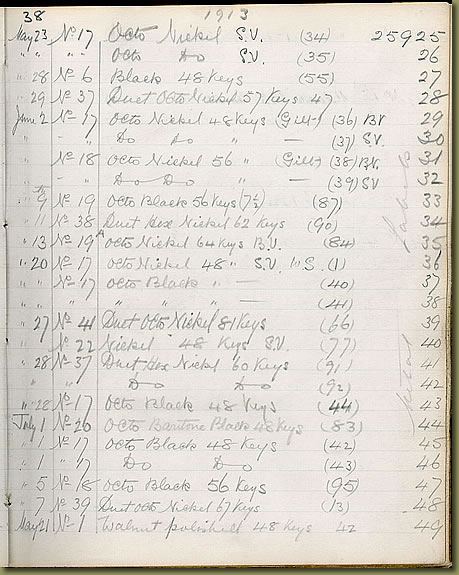 38 1913
May 23 No 17 Octo Nickel S.V. (34) 25925
" " " " Octo Do S.V. (35) 26
" 28 No 6 Black 48 Keys (55) 27
" 29 No 37 Duet Octo Nickel 57 Keys 47 28
June 2 No 17 Octo Nickel 48 Keys (Gilt) (36) BV 29
" - " Do Do " — (37) S.V. 30
No 18 Octo Nickel 56 " Gilt) (38) B.V. 31
" Do Do " — (39) SV 32
" 9 No 19 Octo Black 56 Keys (7½) (87) 33
" 11 No 38 Duet Hex Nickel 62 Keys (90) 34
" 13 No 19A Octo Nickel 64 Keys B.V. (84) 35
" 20 No 17 Octo Nickel 48 " S.V. (1) 36
" " No 17 Octo Black " — (40) 37
" " " " " — (41) 38
" 27 No 41 Duet Octo Nickel 81 Keys (66) 39
No 22 Nickel 48 Keys S.V. (77) 40
" 28 No 37 Duet Hex Nickel 60 Keys (91) 41
" " Do Do (92) 42
" 28 No 17 Octo Black 48 Keys (44) 43
July 1 No 20 Octo Baritone Black 48 Keys (83) 44
" 1 No 17 Octo Black 48 Keys (42) 45
" 1 " 17 Do Do (43) 46
" 5 No 18 Octo Black 56 Keys (95) 47
" 7 No 39 Duet Octo Nickel 67 Keys (13) 48
May 21 No 1 Walnut polished 48 Keys 42 49